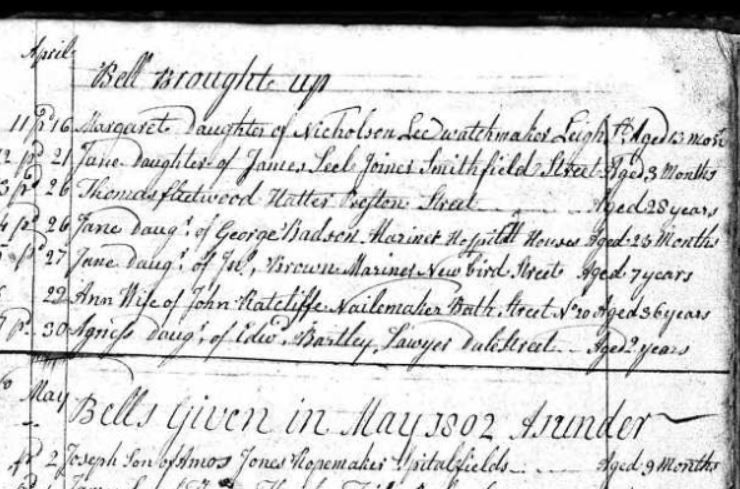 April
Bell Brought up
11 pd 16 Margaret Daughter of Nicholson Lee watchmaker Leigh St. Aged 13 Mon
12 pd 21 Jane Daughter of James Seel Joiner Smithfield Street Aged 3 Months
3 pd 26 Thomas Fleetwood Hatter Preston Street Aged 28 years
4 pd 26 Jane Daugr. of George Badson Mariner Hospitall Houses Aged 23 Months
pd 27 Jane Daugr. of Jno. Brown Mariner New bird Street Aged 7 years
22 Ann Wife of John Ratcliffe Nailemaker Bath Street No 20 Aged 36 years
pd 30 Agness Daugr. of Edwd. Bartley Lawyer Dale Street Aged 2 years
May
Bells Given in May 1802 Asunder
pd 2 Joseph Son of Amos Jones Ropemaker Spitalfields Aged 9 Months
James